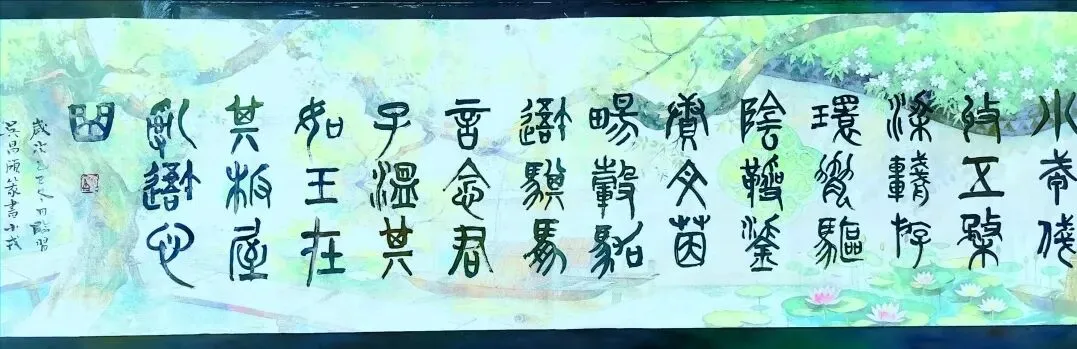 小戎俴
收五楘
梁輈游
環脅驅
陰靷鋈
續文茵
暢轂駕
我騏馵
言念君
子溫其
如玉在
其板屋
亂我心
曲
歲次乙巳冬月臨習
吳昌碩篆書小戎